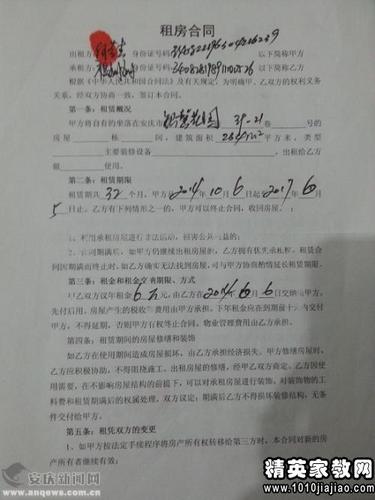 租房合同
出租方: 身份证号码: 以下简称甲方
承租方: 身份证号码: 以下简称乙方
根据《中华人民共和国合同法》及有关规定，为明确甲、乙双方的权利义务
关系，经双方协商一致，签订本合同。
第一条：租赁概况
甲方将自有的坐落在安庆市 花园 39-21 号的
房屋 栋 间，建筑面积 平方米，类型
主要装修设备 ，出租给乙方
做 使用。
第二条：租赁期限
租赁期共 32 个月，甲方从 2014 年 10 月 6 日起 2017 年 6 月
5 日止。乙方有下列情形之一的，甲方可以终止合同，收回房屋：
1、利用承租房屋进行非法活动，损害公共利益的；
2、合同期满后，如甲方仍继续出租房屋，乙方拥有优先承租权。租赁合
同因期满而终止时，如乙方确实无法找到房屋，可与甲方协商酌情延长租赁期限。
第三条：租金和租金交纳期限、方式
甲乙双方议年租金 ，由乙方在 2014 年 月 6 日交纳给甲方。
先付后用。房屋产生的税收 费用由甲方承担。下年租金应在到期前十 内交付
甲方，不得延期，否则甲方有权终止合同。物业管理费用由乙方承担。
第四条：租赁期间的房屋修缮和装饰
如乙方在使用期间造成房屋损坏，由乙方承担经济损失。甲方修缮房屋时，
乙方应积极协助，不得阻挠施工。出租房屋的修缮，经甲乙双方商定。乙方因使
用需要，在不影响房屋结构的前提下，可以对承租房屋进行装饰。对装饰物的工
料费和租赁期满后的权属处理，双方议定：期满后乙方不得损坏装修结构，无条
件交付给甲方。
第五条：租赁双方的变更
1、如甲方按法定手续程序将房产所有权转移给第三方时，本合同对新的房
产所有者继续有效；
安庆新闻网
www.anqews.com.cn
精英家教网
www.1010jiajiao.com